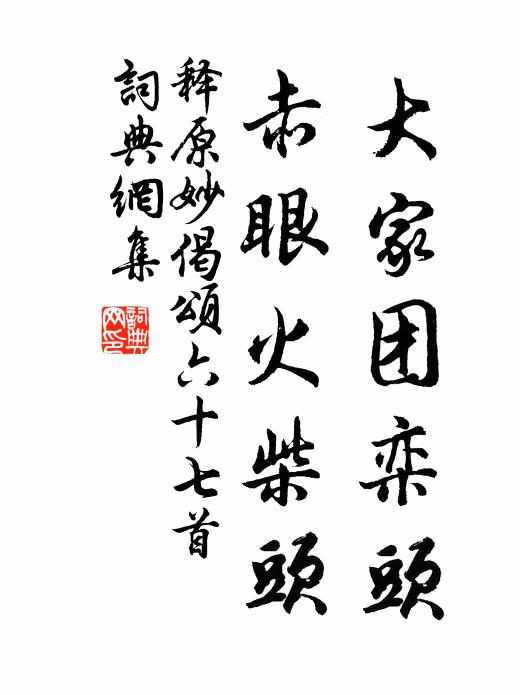 大家团栾頭
赤眼火柴頭
释原妙偈頌六十七首
詞典網集
詞典网印